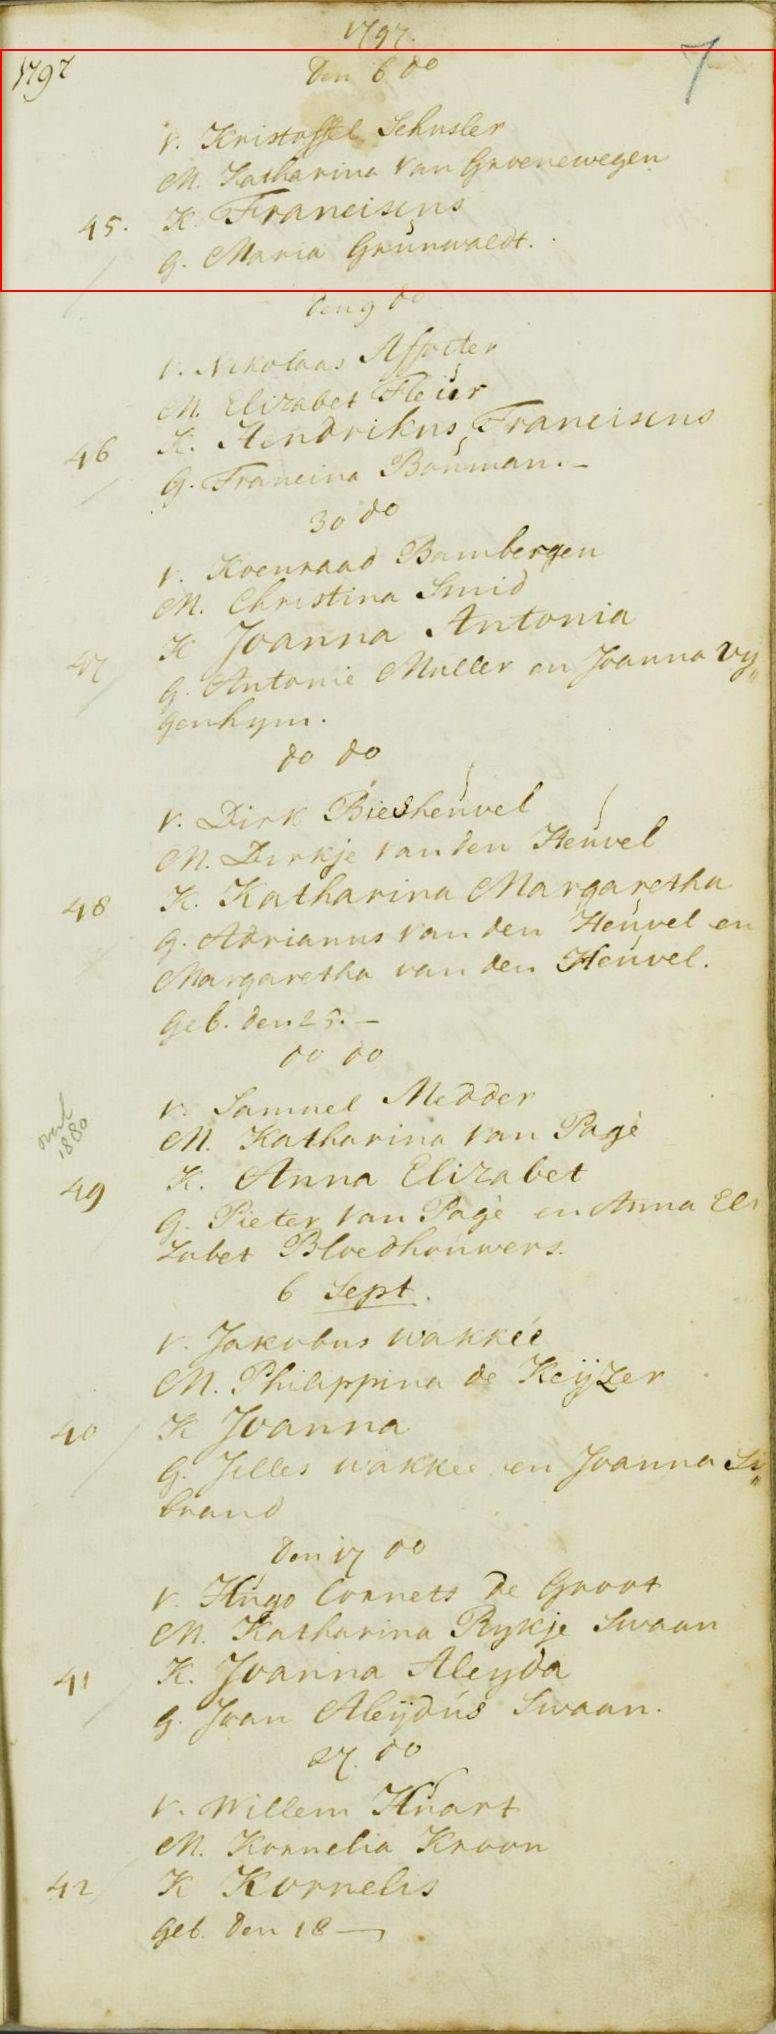 1797.
7
1797
Den 6 do
V. Kristoffel Schusler
M. Katharina van Groenewegen
45. K. Franciscus
G. Maria Grunwaldt.
Den 9 do
V. Nikolaas Affolter
M. Elizabet Fleur
46 K. Hendrikus Franciscus
G. Francina Bouman. -
30 do
V. Koenraad Bambergen
M. Christina Smid
47 K Joanna Antonia
G. Antonie Muller en Joanna Vy„
genhym.
do do
V. Dirk Biesheuvel
M. Dirkje van den Heuvel
48 K. Katharina Margaretha
G. Adrianus van den Heuvel en
Margaretha van den Heuvel.
Geb. den 25. -
do do
V. Samuel Medder
ovl 1880
M. Katharina van Pagé
49 K. Anna Elizabet
G. Pieter van Pagé en Anna Eli
zabet Bloedhouwers.
6 Sept.
V. Jakobus Wakkée
M. Philippina de Keijzer
40 K Joanna
G. Jilles Wakkee en Joanna Si„
brand
Den 17 do
V. Hugo Cornets de Groot
M. Katharina Rykje Swaan
41 K. Joanna Aleyda
G. Joan Aleijdus Swaan.
27. do
V. Willem Huart
M. Kornelia Kroon
42 K Kornelis
Geb. den 18 —